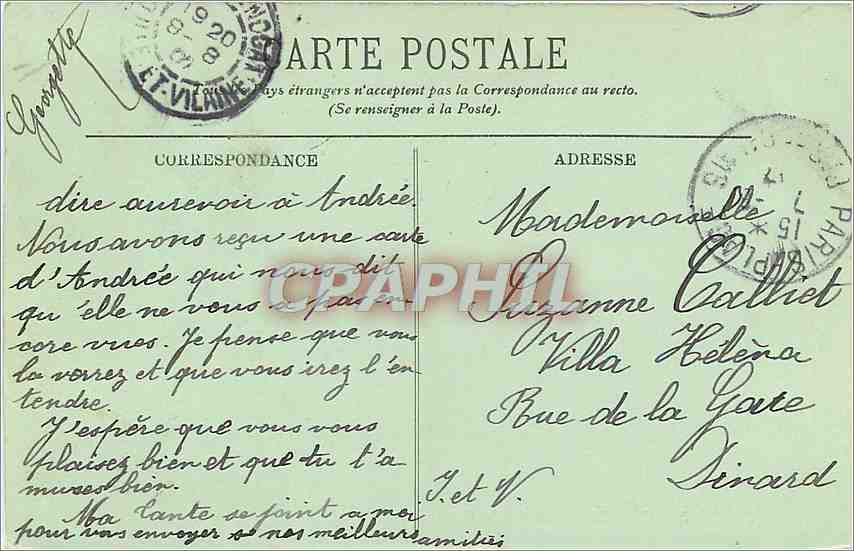 Georgette
19 20
8 - 8
ET-VILAINE
CARTE POSTALE
Tous les Pays étrangers n'acceptent pas la Correspondance au recto.
(Se renseigner à la Poste).
CORRESPONDANCE
dire aurevoir à Andrée.
Nous avons reçu une carte
d'Andrée qui nous dit
qu'elle ne vous a pas en-
core vues. Je pense que vous
la verrez et que vous irez l'en-
tendre.
J'espère que vous vous
plaisez bien et que tu t'a-
muses bien.
Ma tante se joint a moi
pour vous envoyer se nos meilleurs
amitiés
ADRESSE
Mademoiselle
Suzanne Talliet
Villa Héléna
Rue de la Gare
Dinard
I. et V.
PARIS
15 *
7
CPAPHIL